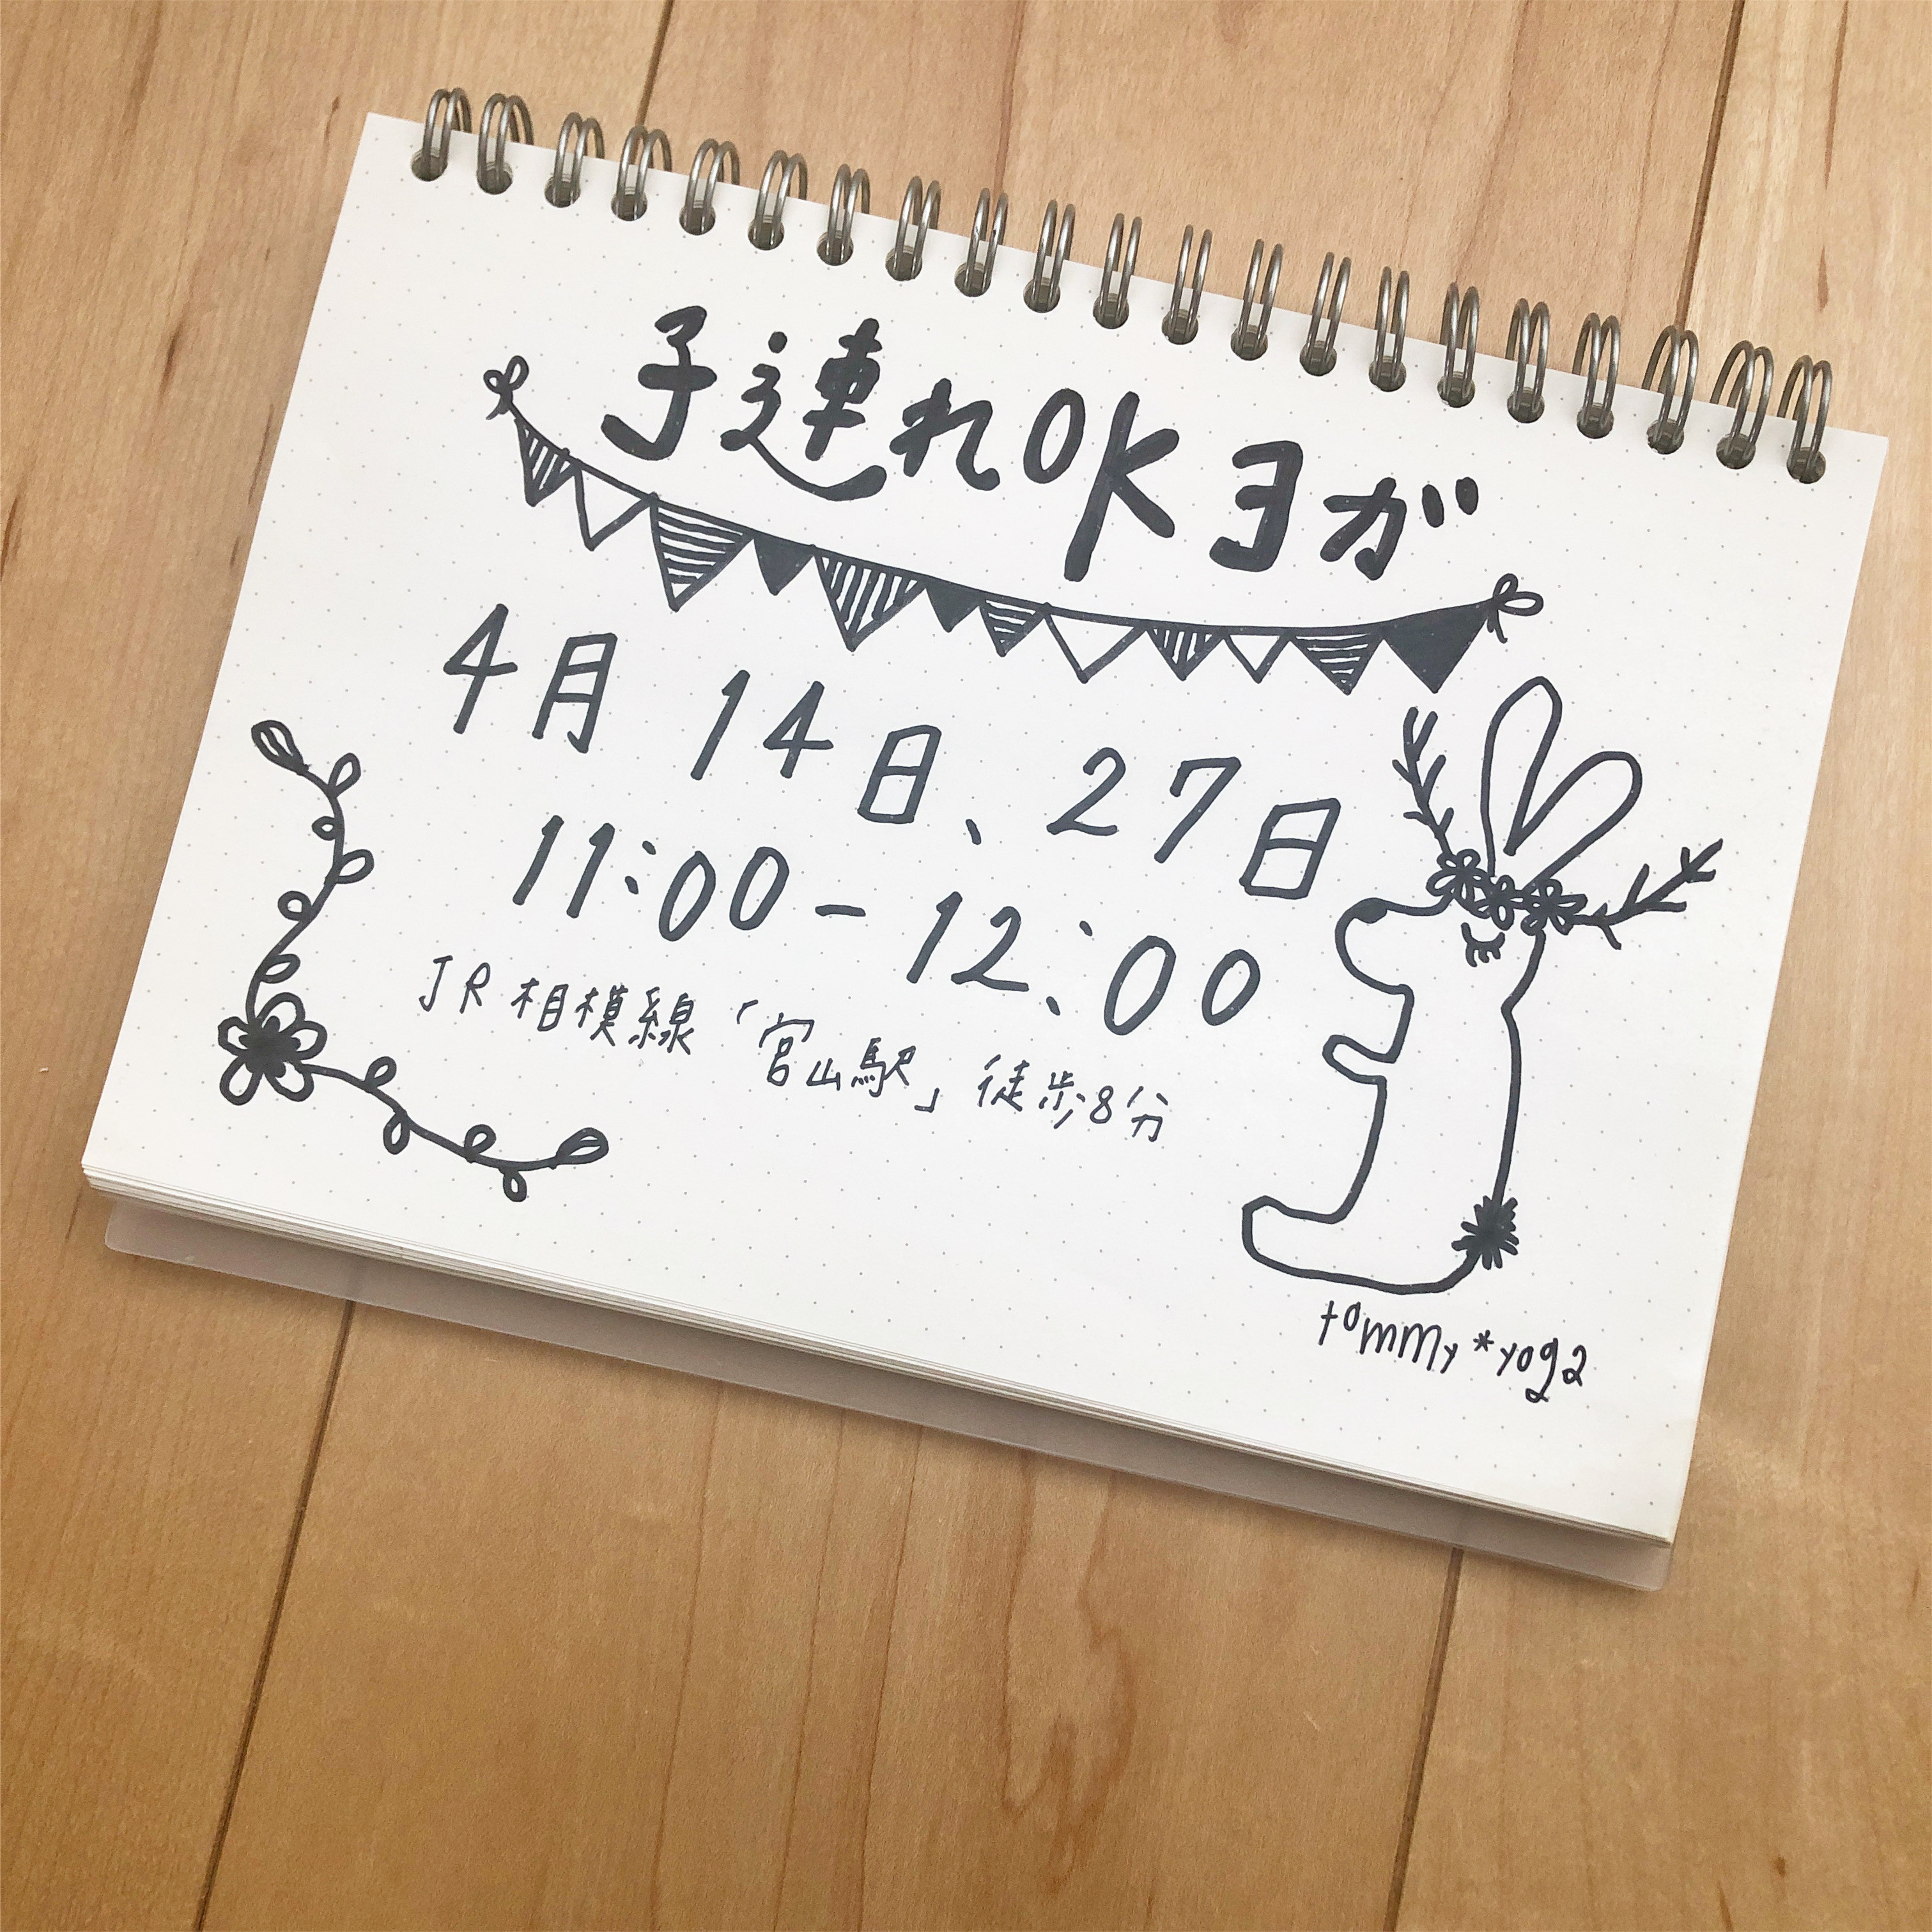 子連れOKヨガ
4月 14日、27日
11:00-12:00
JR相模線「宮山駅」徒歩8分
tommy*yoga